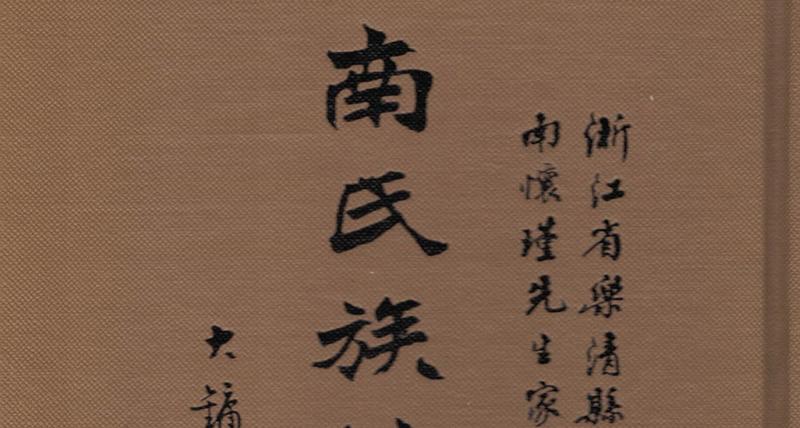 浙江省樂清縣
南懷瑾先生家
南氏族
大鏞